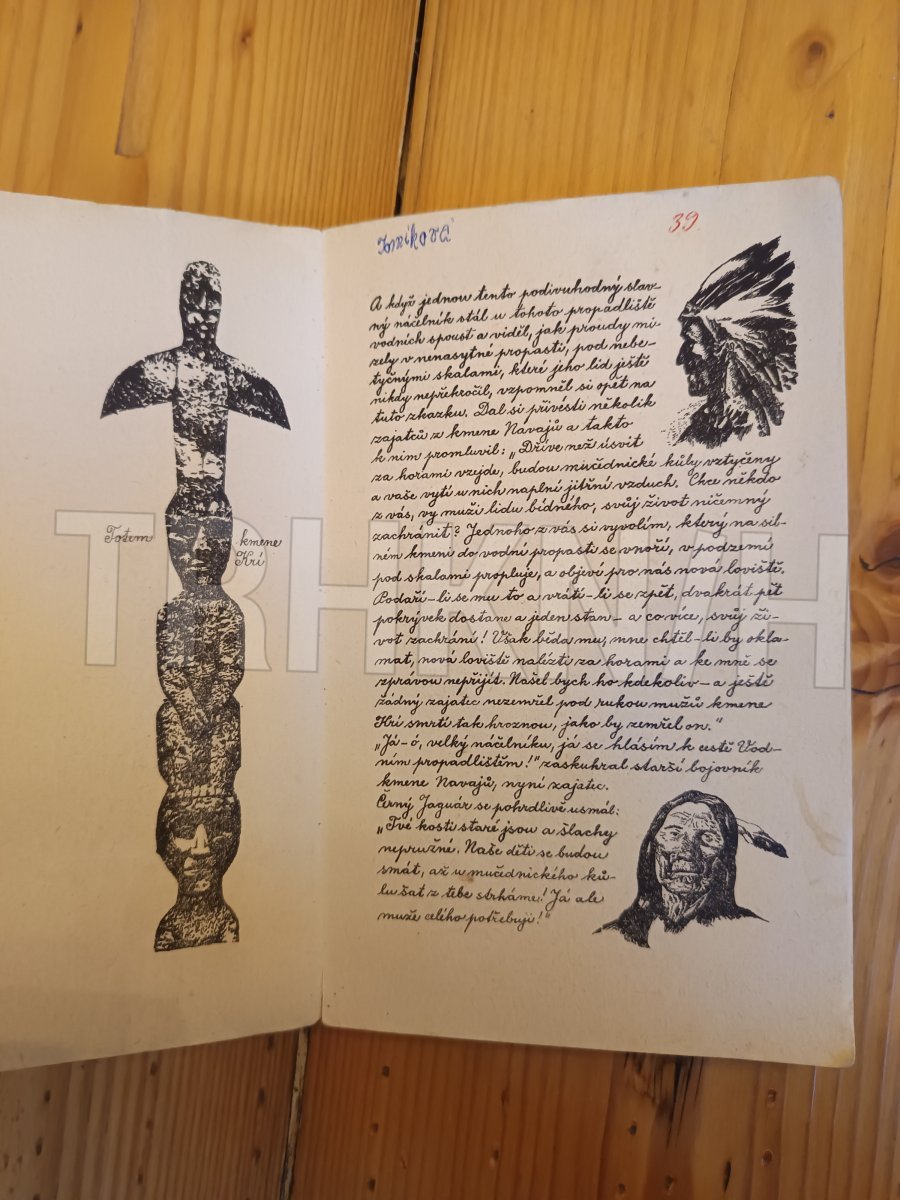 Totem kmene
Krí
39.
A když jednou tento podivuhodný slav-
ný náčelník stál u tohoto propadliště
vodních spoust a viděl, jak proudy mi-
zely v nenasytné propasti, pod nebe-
tyčnými skalami, které jeho lid ještě
nikdy nepřekročil, vzpomněl si opět na
tuto zkazku. Dal si přivésti několik
zajatců z kmene Navajů a takto
k nim promluvil: „Dříve než úsvit
za horami vzejde, budou mučednické kůly vztyčeny
a vaše vytí u nich naplní jitřní vzduch. Chce někdo
z vás, vy muži lidu bídného, svůj život ničemný
zachránit? Jednoho z vás si vyvolím, který na sil-
ném kmeni do vodní propasti se vnoří, v podzemí
pod skalami propluje, a objeví pro nás nová loviště.
Podaří-li se mu to a vrátí-li se zpět, dvakrát pět
pokrývek dostane a jeden stan – a co více, svůj ži-
vot zachrání! Však běda mu, mne chtěl-li by okla-
mat, nová loviště nalézti za horami a ke mně se
zprávou nepřijít. Našel bych ho kdekoliv – a ještě
žádný zajatec nezemřel pod rukou mužů kmene
Krí smrtí tak hroznou, jako by zemřel on.“
„Já-ó, velký náčelníku, já se hlásím k cestě Vod-
ním propadlištěm!“ zaskuhral starší bojovník
kmene Navajů, nyní zajatec.
Černý Jaguár se pohrdlivě usmál:
„Tvé kosti staré jsou a šlachy
nepružné. Naše děti se budou
smát, až u mučednického ků-
lu šat z tebe strháme! Já ale
muže celého potřebuji!“
TRHKNIH